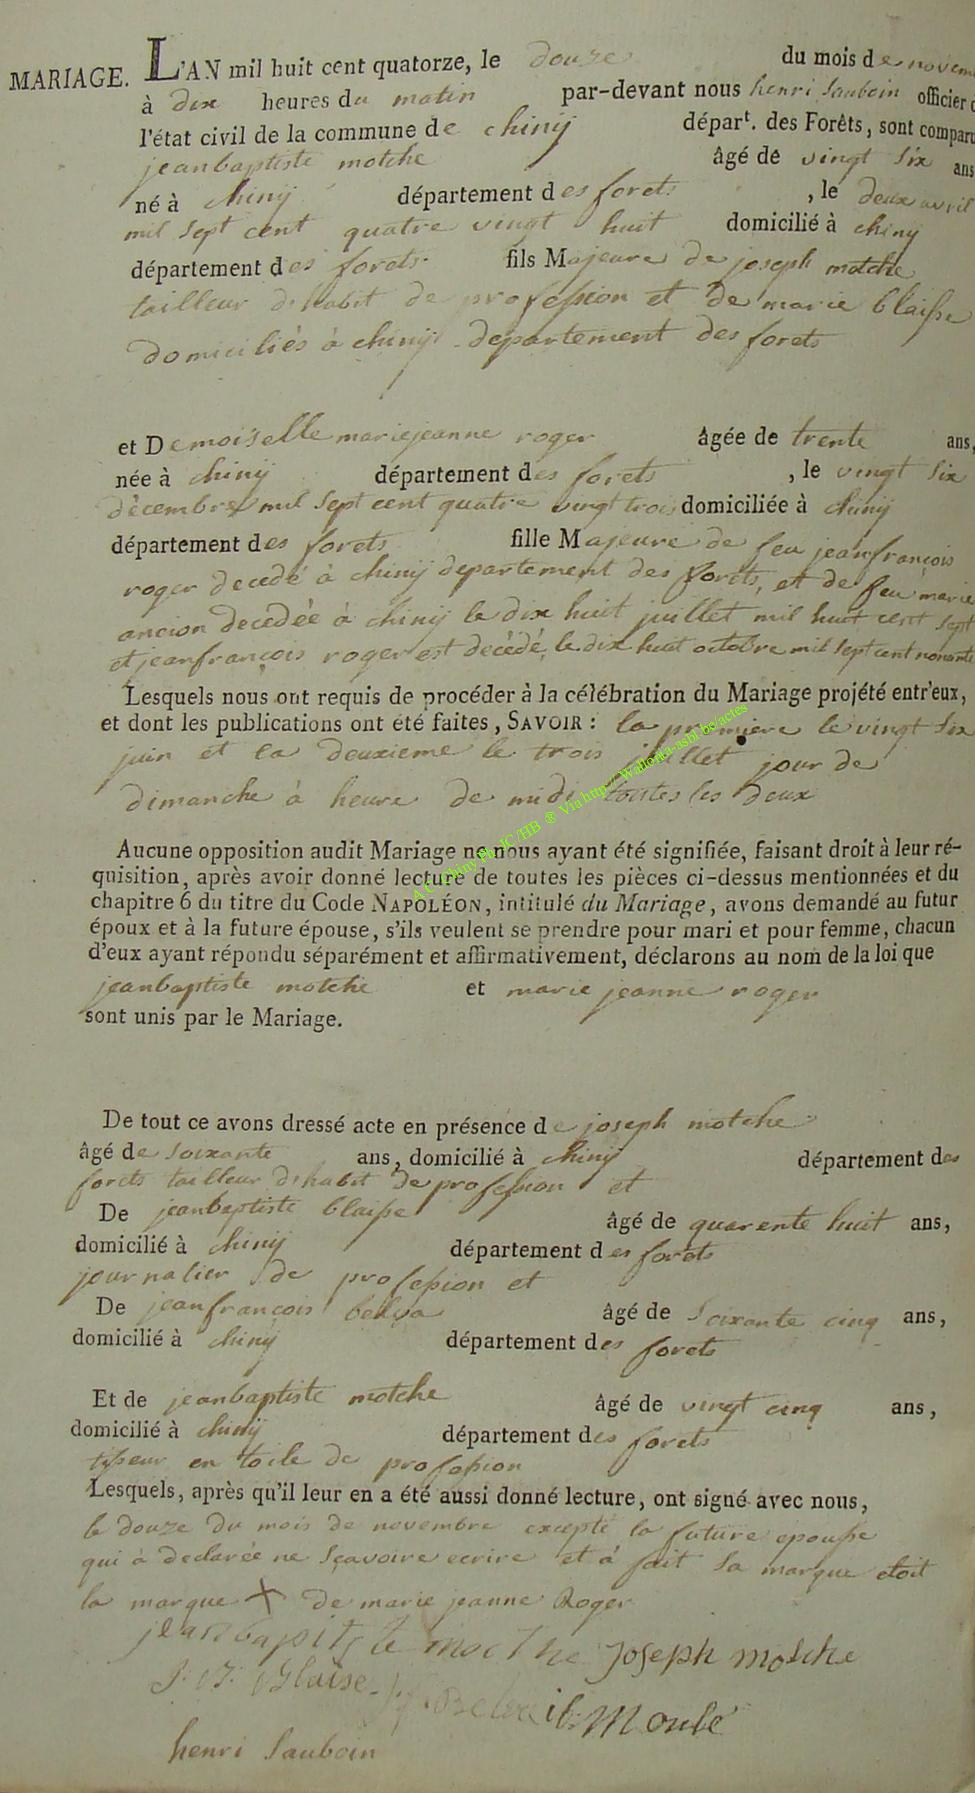 MARIAGE. L'AN mil huit cent quatorze, le douze du mois de novem
à dix heures du matin par-devant nous henri Sauboin officier d
l'état civil de la commune de chinij départ. des Forêts, sont comparu
jeanbaptiste motche âgé de vingt six ans
né à chinij département des forets , le deux avril
mil sept cent quatre vingt huit domicilié à chiny
département des forets fils Majeure de joseph motche
tailleur d'habit de profession et de marie blaisse
domiciliés à chinij departement des forets
et Demoiselle mariejeanne roger âgée de trente ans,
née à chinij département des forets , le vingt six
décembre mil sept cent quatre vingt trois domiciliée à chinij
département des forets fille Majeure de feu jeanfrançois
roger decedé à chinij departement des forets, et de feu marie
ancion decedée à chinij le dix huit juillet mil huit cent sept
et jeanfrançois roger est décédé le dix huit octobre mil sept cent nonante
Lesquels nous ont requis de procéder à la célébration du Mariage projété entr'eux,
et dont les publications ont été faites, SAVOIR : la premiere le vingt six
juin et la deuxieme le trois juillet jour de
dimanche à heure de midi toutes les deux
Aucune opposition audit Mariage ne nous ayant été signifiée, faisant droit à leur ré-
quisition, après avoir donné lecture de toutes les pièces ci-dessus mentionnées et du
chapitre 6 du titre du Code NAPOLÉON, intitulé du Mariage, avons demandé au futur
époux et à la future épouse, s'ils veulent se prendre pour mari et pour femme, chacun
d'eux ayant répondu séparément et affirmativement, déclarons au nom de la loi que
jeanbaptiste motche et marie jeanne roger
sont unis par le Mariage.
De tout ce avons dressé acte en présence de joseph motche
âgé de soixante ans, domicilié à chiny département des
forets tailleur d'habit de profession et
De jeanbaptiste blaisse âgé de quarente huit ans,
domicilié à chinij département des forets
journalier de profession et
De jeanfrançois âgé de soixante cinq ans,
domicilié à chinij département des forets
Et de jeanbaptiste motche âgé de vingt cinq ans,
domicilié à chinij département des forets
tisseur en toile de profession
Lesquels, après qu'il leur en a été aussi donné lecture, ont signé avec nous,
le douze du mois de novembre excepté la future epousse
qui à declarée ne sçavoire ecrire et à fait sa marque etoit
la marque X de marie jeanne Roger
jeanbapiste mocthe Joseph motche
J. B. Blaise
Moulé
henri Sauboin
A.C. Chiny Ph. JC/HB ® Via http://Wallonia-asbl.be/actes